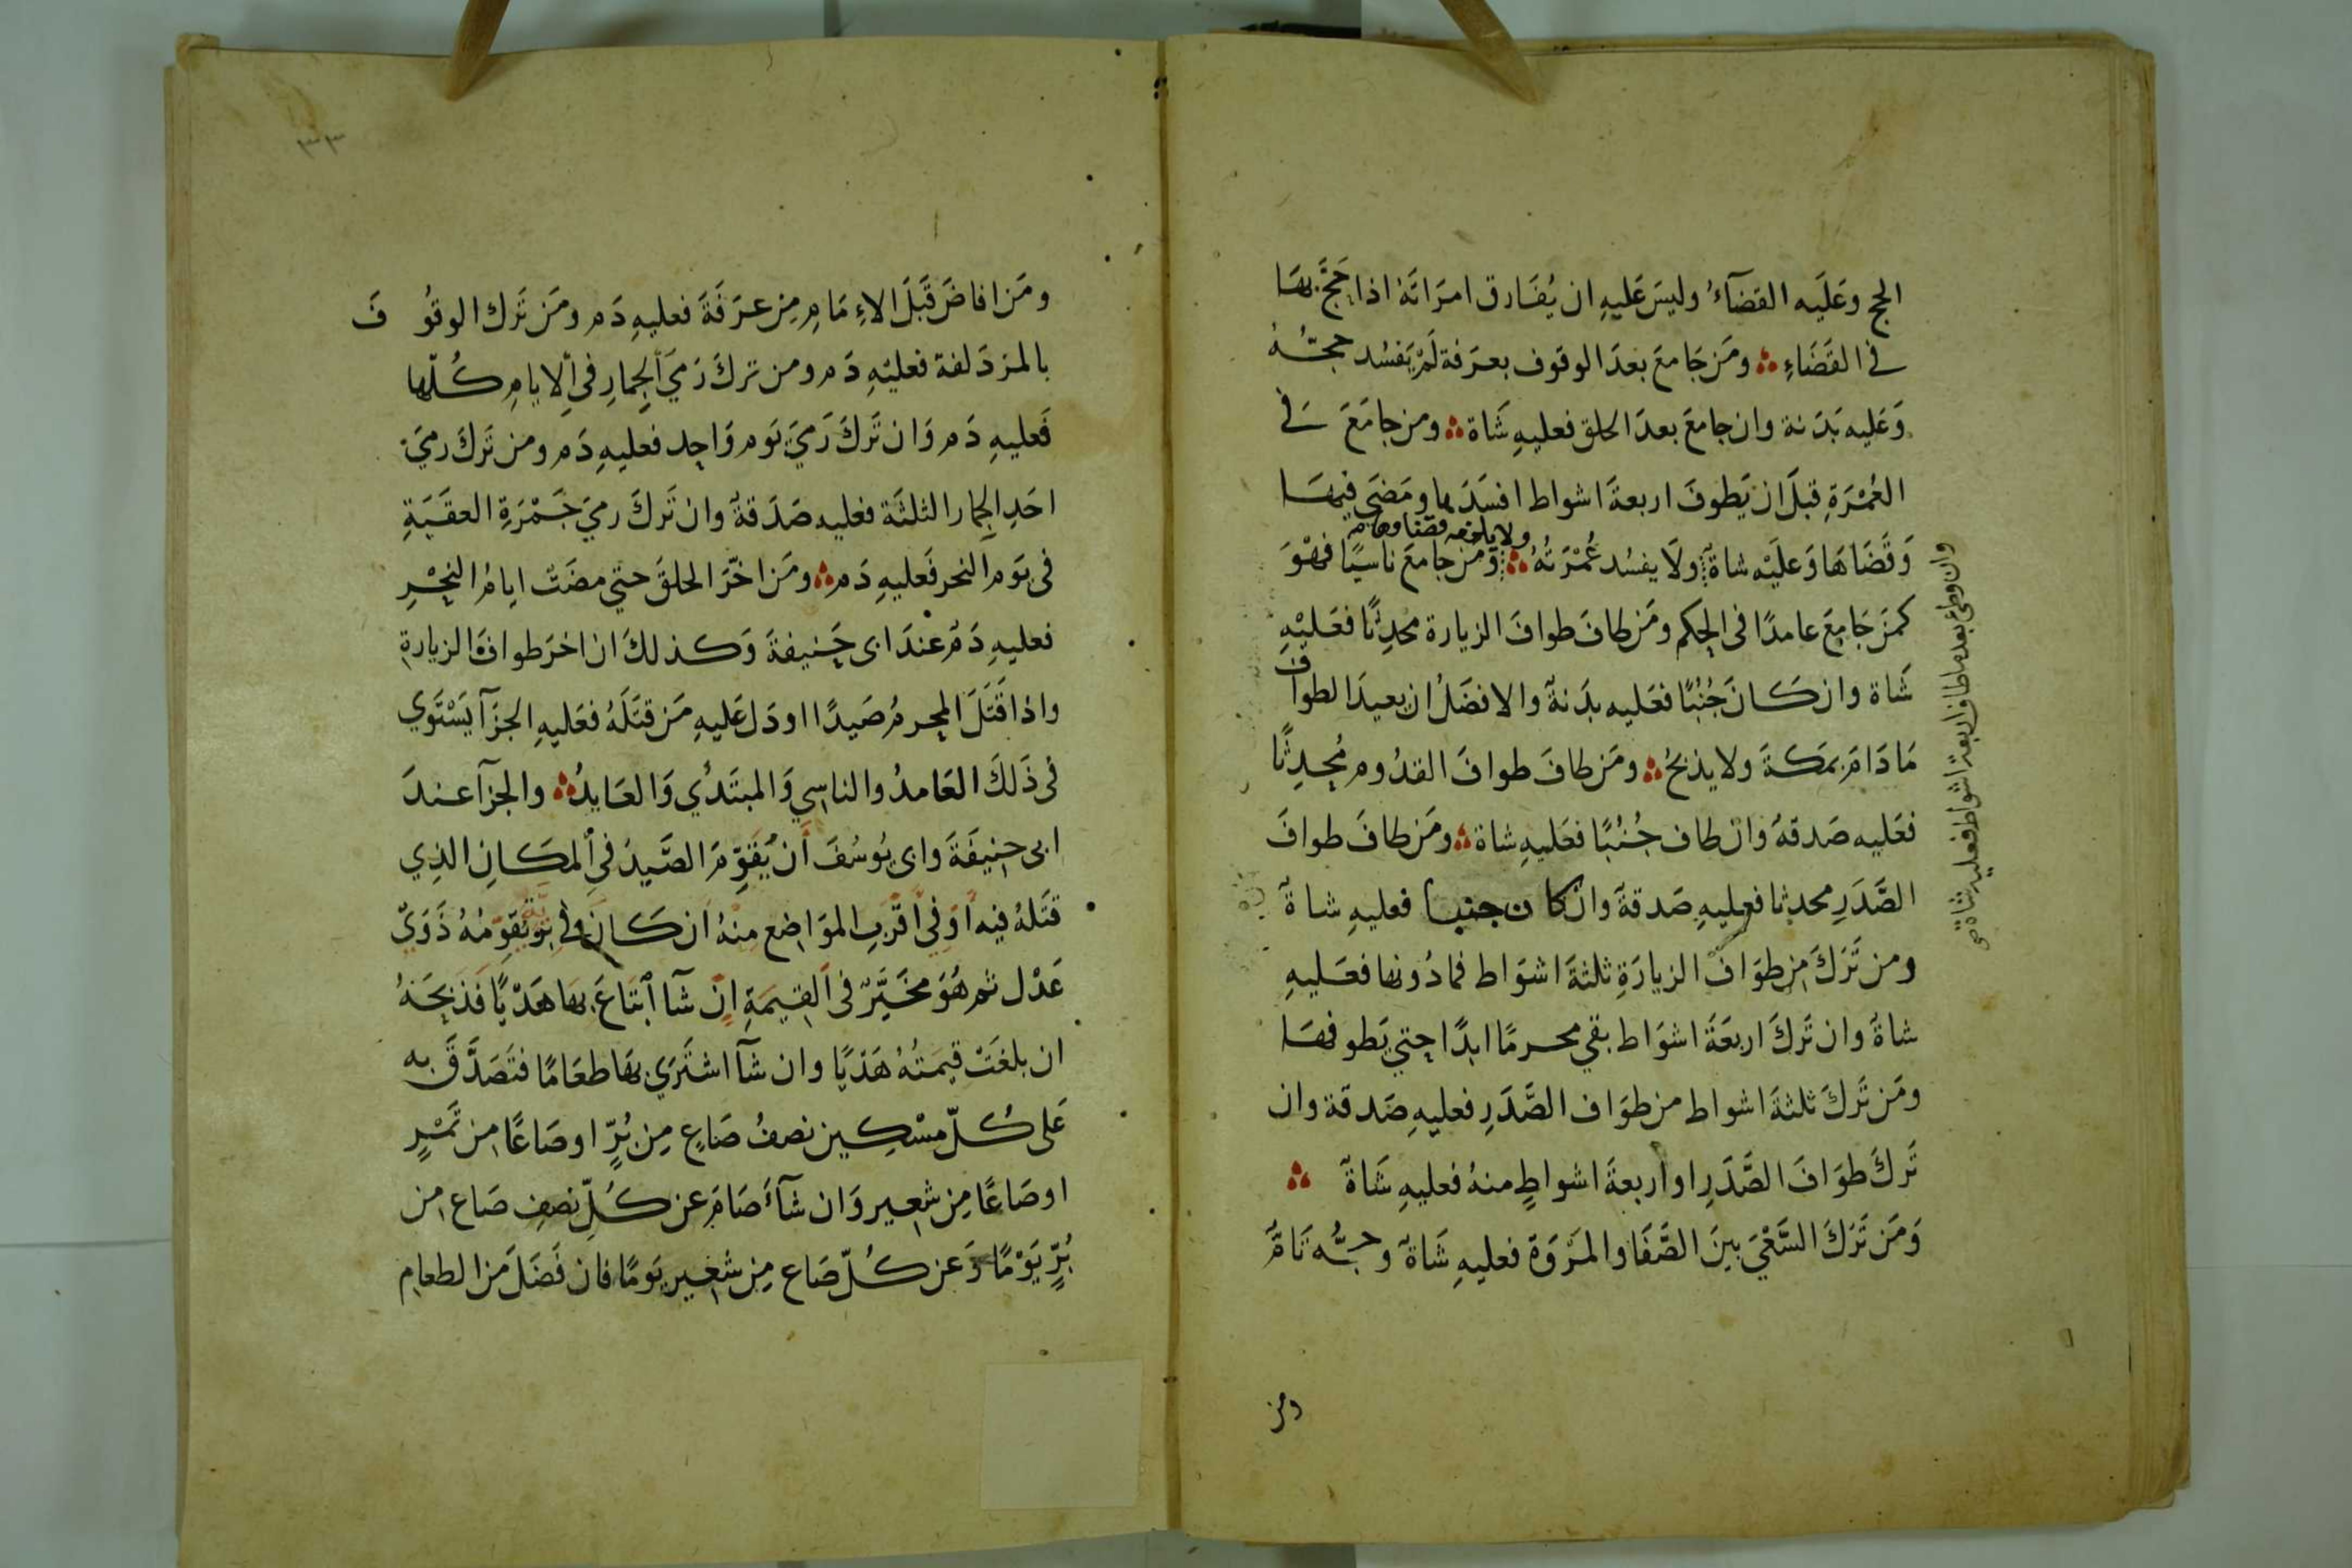 الحج وعَلَيه القضآءُ وليسَ عَليهِ ان يُفَارق امرَاتَهُ اذا حَجَّ بهَا
في القَضَاءِ ؞ ومَن جَامعَ بعدَ الوقوف بعرَفة لَمْ يَفسُد حجّهُ
وَعَليه بَدَنة وان جامعَ بعدَ الحلق فعليهِ شَاة ؞ ومن جامَعَ في
العُمْرَةِ قبلَ ان يَطوفَ اربعةَ اشواط افسَدَها ومَضَى فيهَا
ولا يلزمه قضاوها
وَقَضَاهَا وَعلَيْه شاةٌ ولَا يفسُد عُمْرَتُهُ ؞ وَمَن جامعَ ناسيًا فهْوَ
كمَن جَامَعَ عامدًا فى الحكم ومَن طافَ طوافَ الزيارة محدِثًا فعَليْهِ
شَاة وان كَانَ جُنُبًا فعَليه بدَنةٌ والافضَلُ ان يعيدَ الطواف
مَا دَامَ بمَكةَ ولا يذبحُ ؞ ومَن طافَ طوافَ القدُوم مُحدِثًا
فعَليه صَدقهٌ وان طاف جُنُبًا فعَليهِ شاة ؞ ومَن طافَ طوافَ
الصَّدَرِ محدثا فعليهِ صَدقةٌ وان كان جنبا فعليهِ شاةٌ
ومن تَرَكَ مِن طوَافِ الزيارَةِ ثلثةَ اشوَاط فمادُونها فعَليهِ
شاةٌ وان تَركَ اربعَةَ اشوَاط بقي محرمًا ابدًا حتي يَطوفهَا
ومَن تَركَ ثلثةَ اشواط من طوَاف الصَّدَرِ فعليهِ صَدقة وان
تَركَ طوَافَ الصَّدَرِ او اربعةَ اشواطٍ منهُ فعليهِ شَاةٌ ؞
وَمَن تَرَكَ السَّعْيَ بينَ الصَّفَا والمَرْوَة فعليهِ شَاةٌ وحجُّه تَامٌّ
وان وطئ بعد ما طاف اربعة اشواط فعليه شاة صح
ومن
٣٣
ومَن افاضَ قَبَلَ الاِمَامِ مِن عرَفَةَ فعليهِ دَم ومَن تَرك الوقُوفَ
بالمزدَلفة فعليْهِ دَم ومن تركَ رَمَيَ الجِمارِ فى الايامِ كُلّها
فَعليهِ دَم وَان تَركَ رَميَ يَوم وَاحِد فعليهِ دَم ومن تَركَ رميَ
احَدِ الجِمار الثلثَة فعليه صَدَقةٌ وان تَركَ رميَ جَمْرَةِ العقَبَةِ
فى يَوم النحر فَعليهِ دَم ؞ ومَن اخّرَ الحلقَ حتي مضَتْ ايامُ النحْرِ
فعليهِ دَمٌ عندَ ابى حَنيفةَ وَكذلكَ ان اخرَ طوافَ الزيارةِ
واذا قَتَلَ المحرمُ صَيدًا او دَل عَليهِ مَن قتَلَهُ فعَليهِ الجزَآ يَسْتَوي
فى ذَلكَ العَامدُ والناسِي وَالمبتَدئ وَالعَايدُ ؞ والجزآ عندَ
ابى حنِيفَةَ وابى يُوسُفَ أَن يُقَوِّمَ الصَّيدَ فى المكَانِ الذِي
قتَلهُ فيه اَوفى اَقرَبِ المَوَاضِع مِنهُ ان كَانَ في بَرّيّة يُقَوّمُهُ ذَوَى
عَدْل ثم هُوَ مخَيَّرٌ فى القِيمَةِ اِنْ شآ ابْتَاعَ بهَا هَدْيًا فَذَبَحَهُ
ان بلغَتْ قيمَتُهُ هَدْيًا وان شآ اشتَري بهَا طعَامًا فتَصَدَّقَ به
عَلى كُلّ مسْكِين نصفُ صَاعٍ مِن بُرٍّ او صَاعًا مِن تَمْرٍ
او صَاعًا مِن شعِير وَان شآءَ صَامَ عن كُلِّ نصفِ صَاع مِن
بُرٍّ يَوْمًا وَعن كُلّ صَاع مِن شَعِير يَومًا فان فَضَلَ مَن الطعام